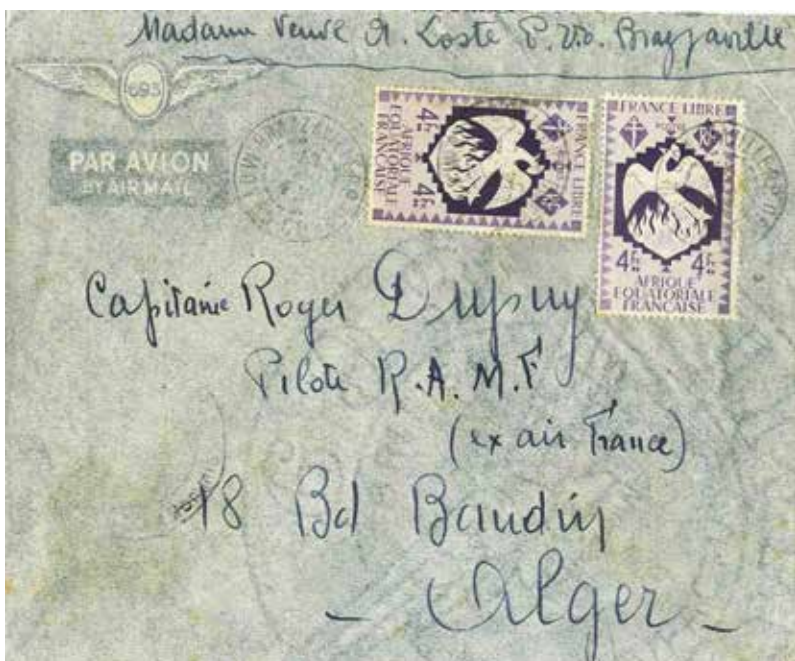 Madame Veuve A. Loste Brazzaville
693
PAR AVION
BY AIR MAIL
FRANCE LIBRE
RF
4F
4F
AFRIQUE
EQUATORIALE
FRANCAISE
FRANCE LIBRE
RF
4F
4F
AFRIQUE
EQUATORIALE
FRANÇAISE
Capitaine Roger Dupuy
Pilote R.A.M.F
(ex air France)
18 Bd Baudin
- Alger -